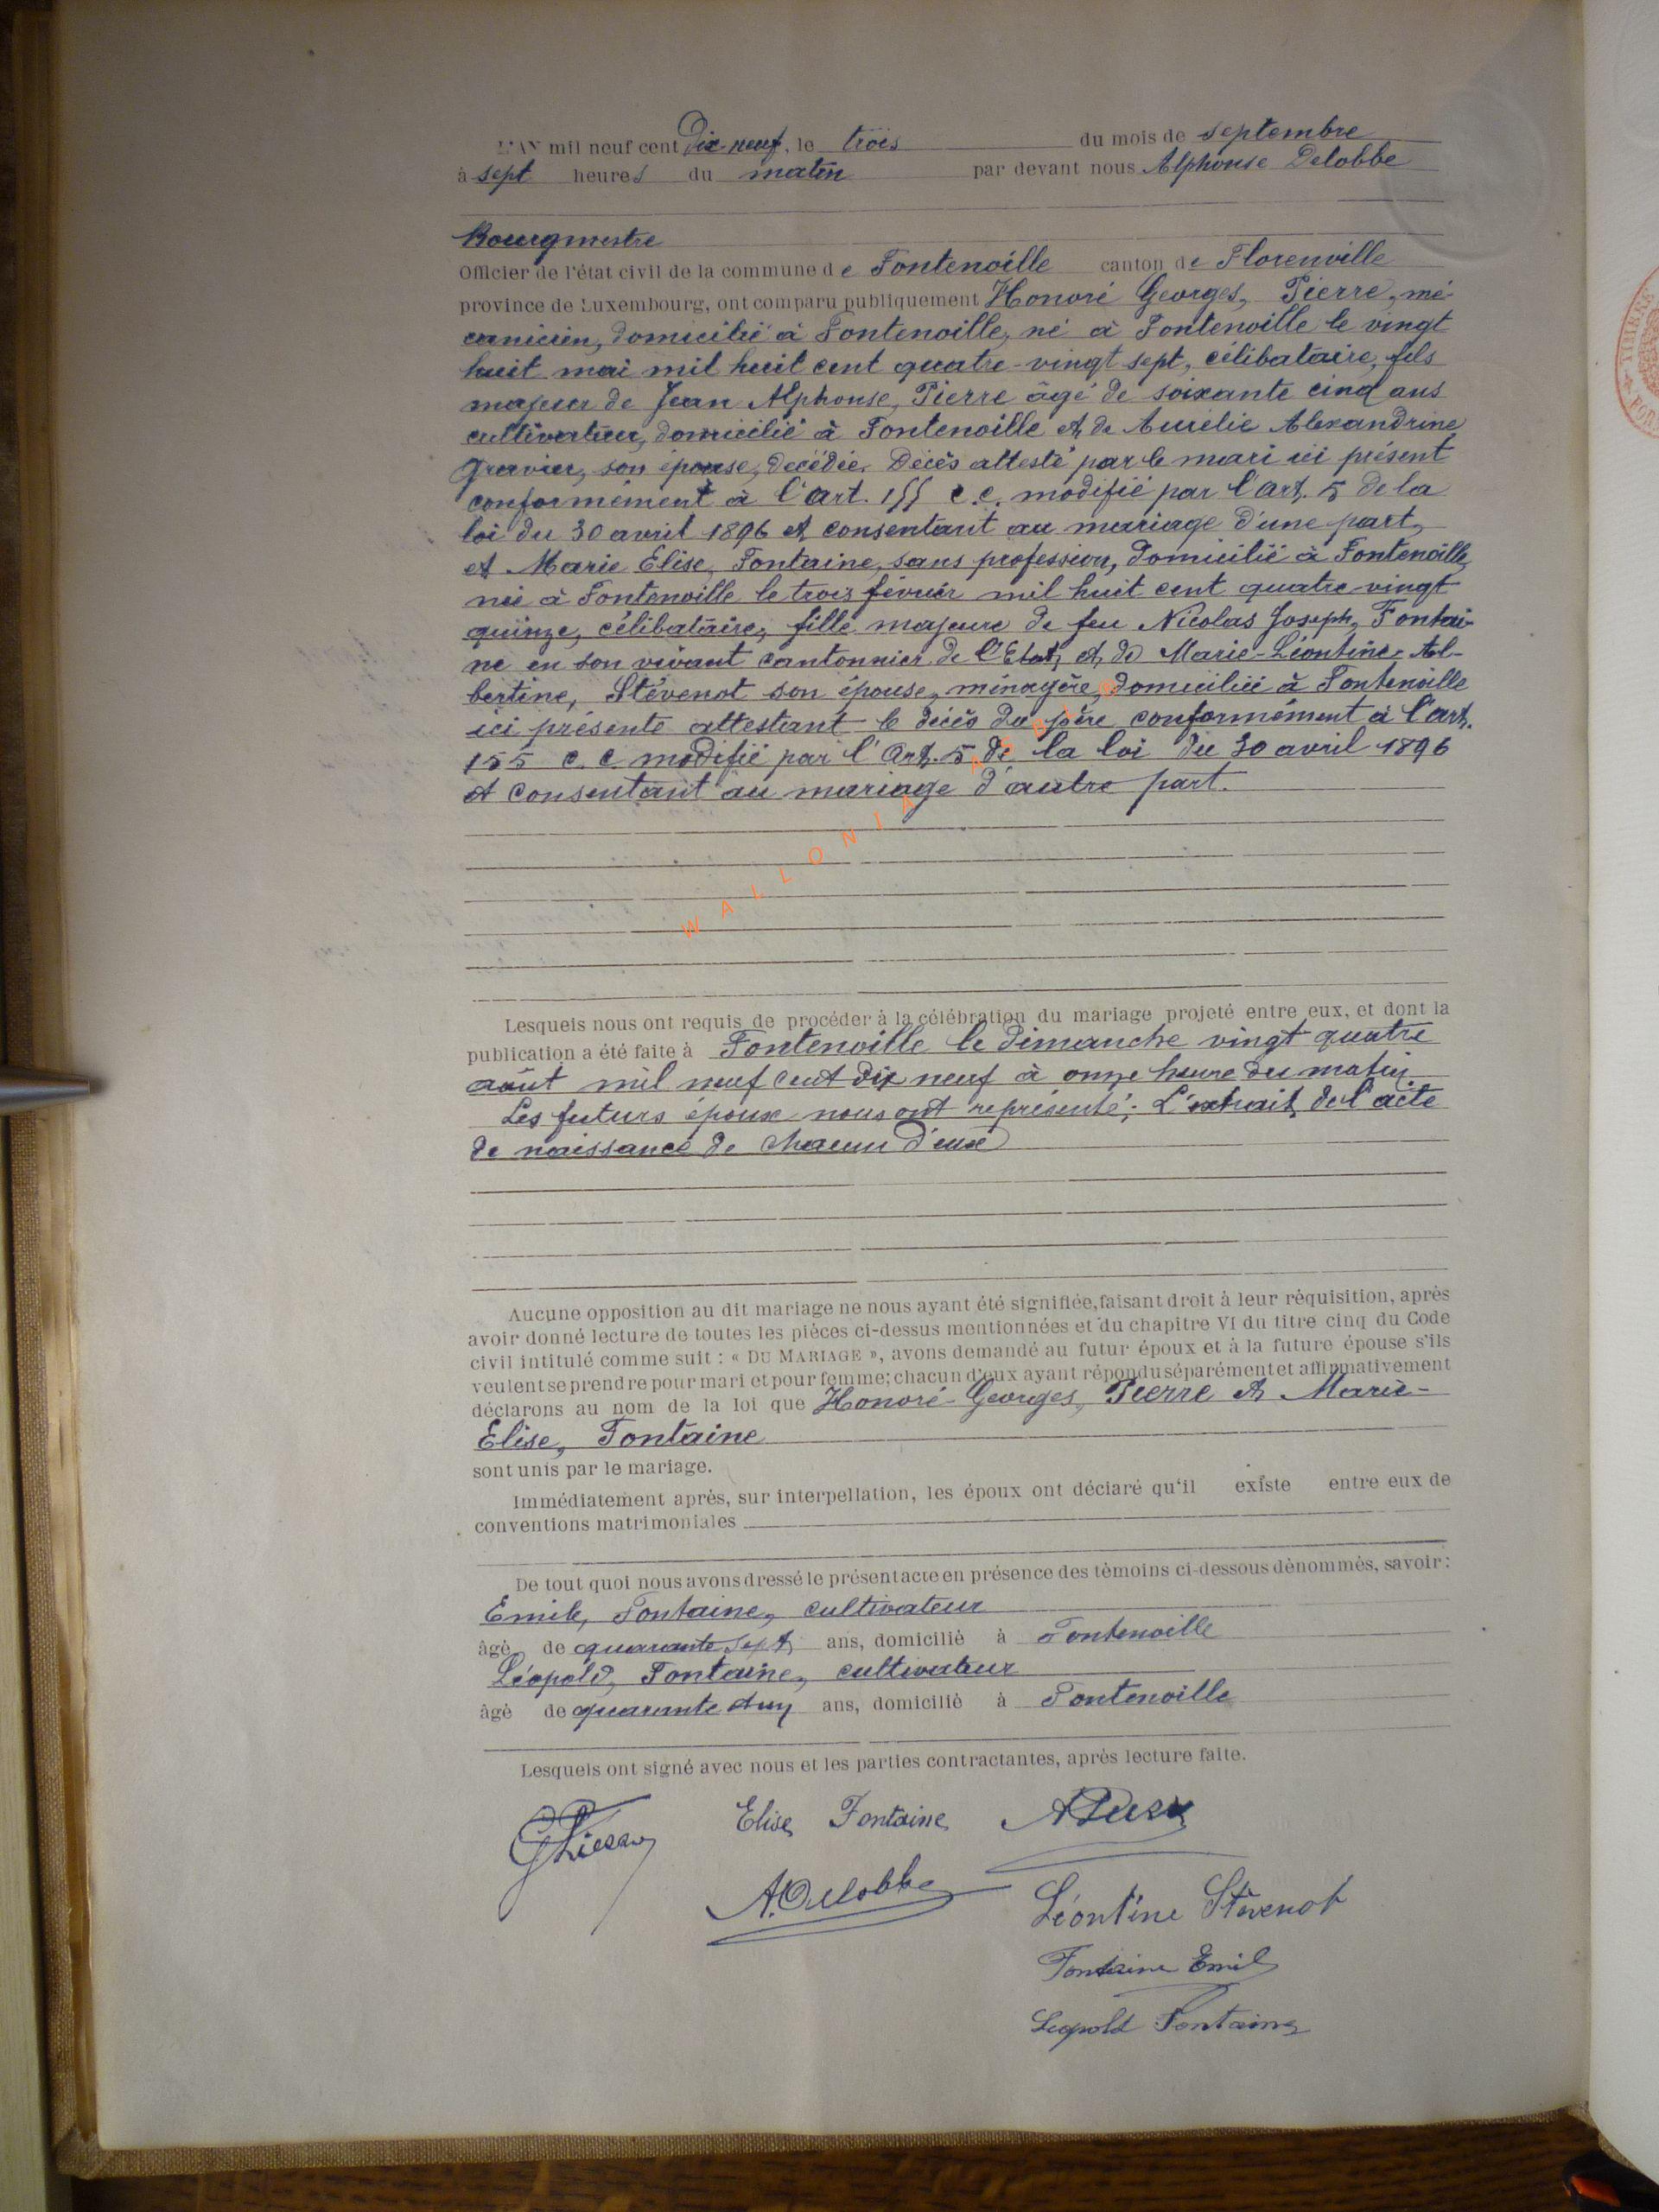 L'AN mil neuf cent Dix-neuf, le trois du mois de septembre
à sept heures du matin par devant nous Alphonse Delobbe
Bourgmestre
Officier de l'état civil de la commune de Fontenoille canton de Florenville
province de Luxembourg, ont comparu publiquement Honoré Georges, Pierre, mé-
canicien, domicilié à Fontenoille, né à Fontenoille le vingt
huit mai mil huit cent quatre-vingt sept, célibataire, fils
majeur de Jean Alphonse, Pierre âgé de soixante cinq ans
cultivateur, domicilié à Fontenoille et de Aurélie Alexandrine
Gravier, son épouse, décédée. Décès attesté par le mari ici présent
conformément à l'art. 155 c.c. modifié par l'art. 5 de la
loi du 30 avril 1896 et consentant au mariage d'une part,
et Marie Elise, Fontaine, sans profession, domicilié à Fontenoille,
née à Fontenoille le trois février mil huit cent quatre-vingt
quinze, célibataire, fille majeure de feu Nicolas Joseph, Fontai-
ne en son vivant cantonnier de l'Etat, et de Marie-Léontine-Al-
bertine, Stévenot son épouse, ménagère, domiciliée à Fontenoille
ici présente attestant le décès du père conformément à l'art.
155 c.c. modifié par l'Art. 5 de la loi du 30 avril 1896
et consentant au mariage d'autre part.
WALLONIA
Lesquels nous ont requis de procéder à la célébration du mariage projeté entre eux, et dont la
publication a été faite à Fontenoille le Dimanche vingt quatre
août mil neuf cent dix neuf à onze heure du matin
Les futurs époux nous ont représenté: L'extrait de l'acte
de naissance de chacun d'eux
Aucune opposition au dit mariage ne nous ayant été signifiée, faisant droit à leur réquisition, après
avoir donné lecture de toutes les pièces ci-dessus mentionnées et du chapitre VI du titre cinq du Code
civil intitulé comme suit : « DU MARIAGE », avons demandé au futur époux et à la future épouse s'ils
veulent se prendre pour mari et pour femme; chacun d'eux ayant répondu séparément et affirmativement
déclarons au nom de la loi que Honoré-Georges, Pierre et Marie-
Elise, Fontaine
sont unis par le mariage.
Immédiatement après, sur interpellation, les époux ont déclaré qu'il existe entre eux de
conventions matrimoniales
De tout quoi nous avons dressé le présent acte en présence des témoins ci-dessous dénommés, savoir :
Emile, Fontaine, cultivateur
âgé de quarante sept ans, domicilié à Fontenoille
Léopold, Fontaine, cultivateur
âgé de quarante et un ans, domicilié à Fontenoille
Lesquels ont signé avec nous et les parties contractantes, après lecture faite.
Elise Fontaine
A. Delobbe
Léontine Stévenot
Fontaine Emile
Léopold Fontaine